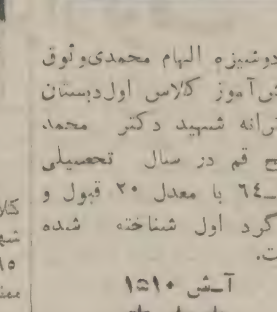 دوشیزه الهام محمدی‌وثوق
ش‌آموز کلاس اول‌دبستان
ترانه شهید دکتر محمد
ح قم در سال تحصیلی
ـ۶۴ با معدل ۲۰ قبول و
گرد اول شناخته شده
ت.
آـش ۱۵۱۰
کلا
شه
۱۵